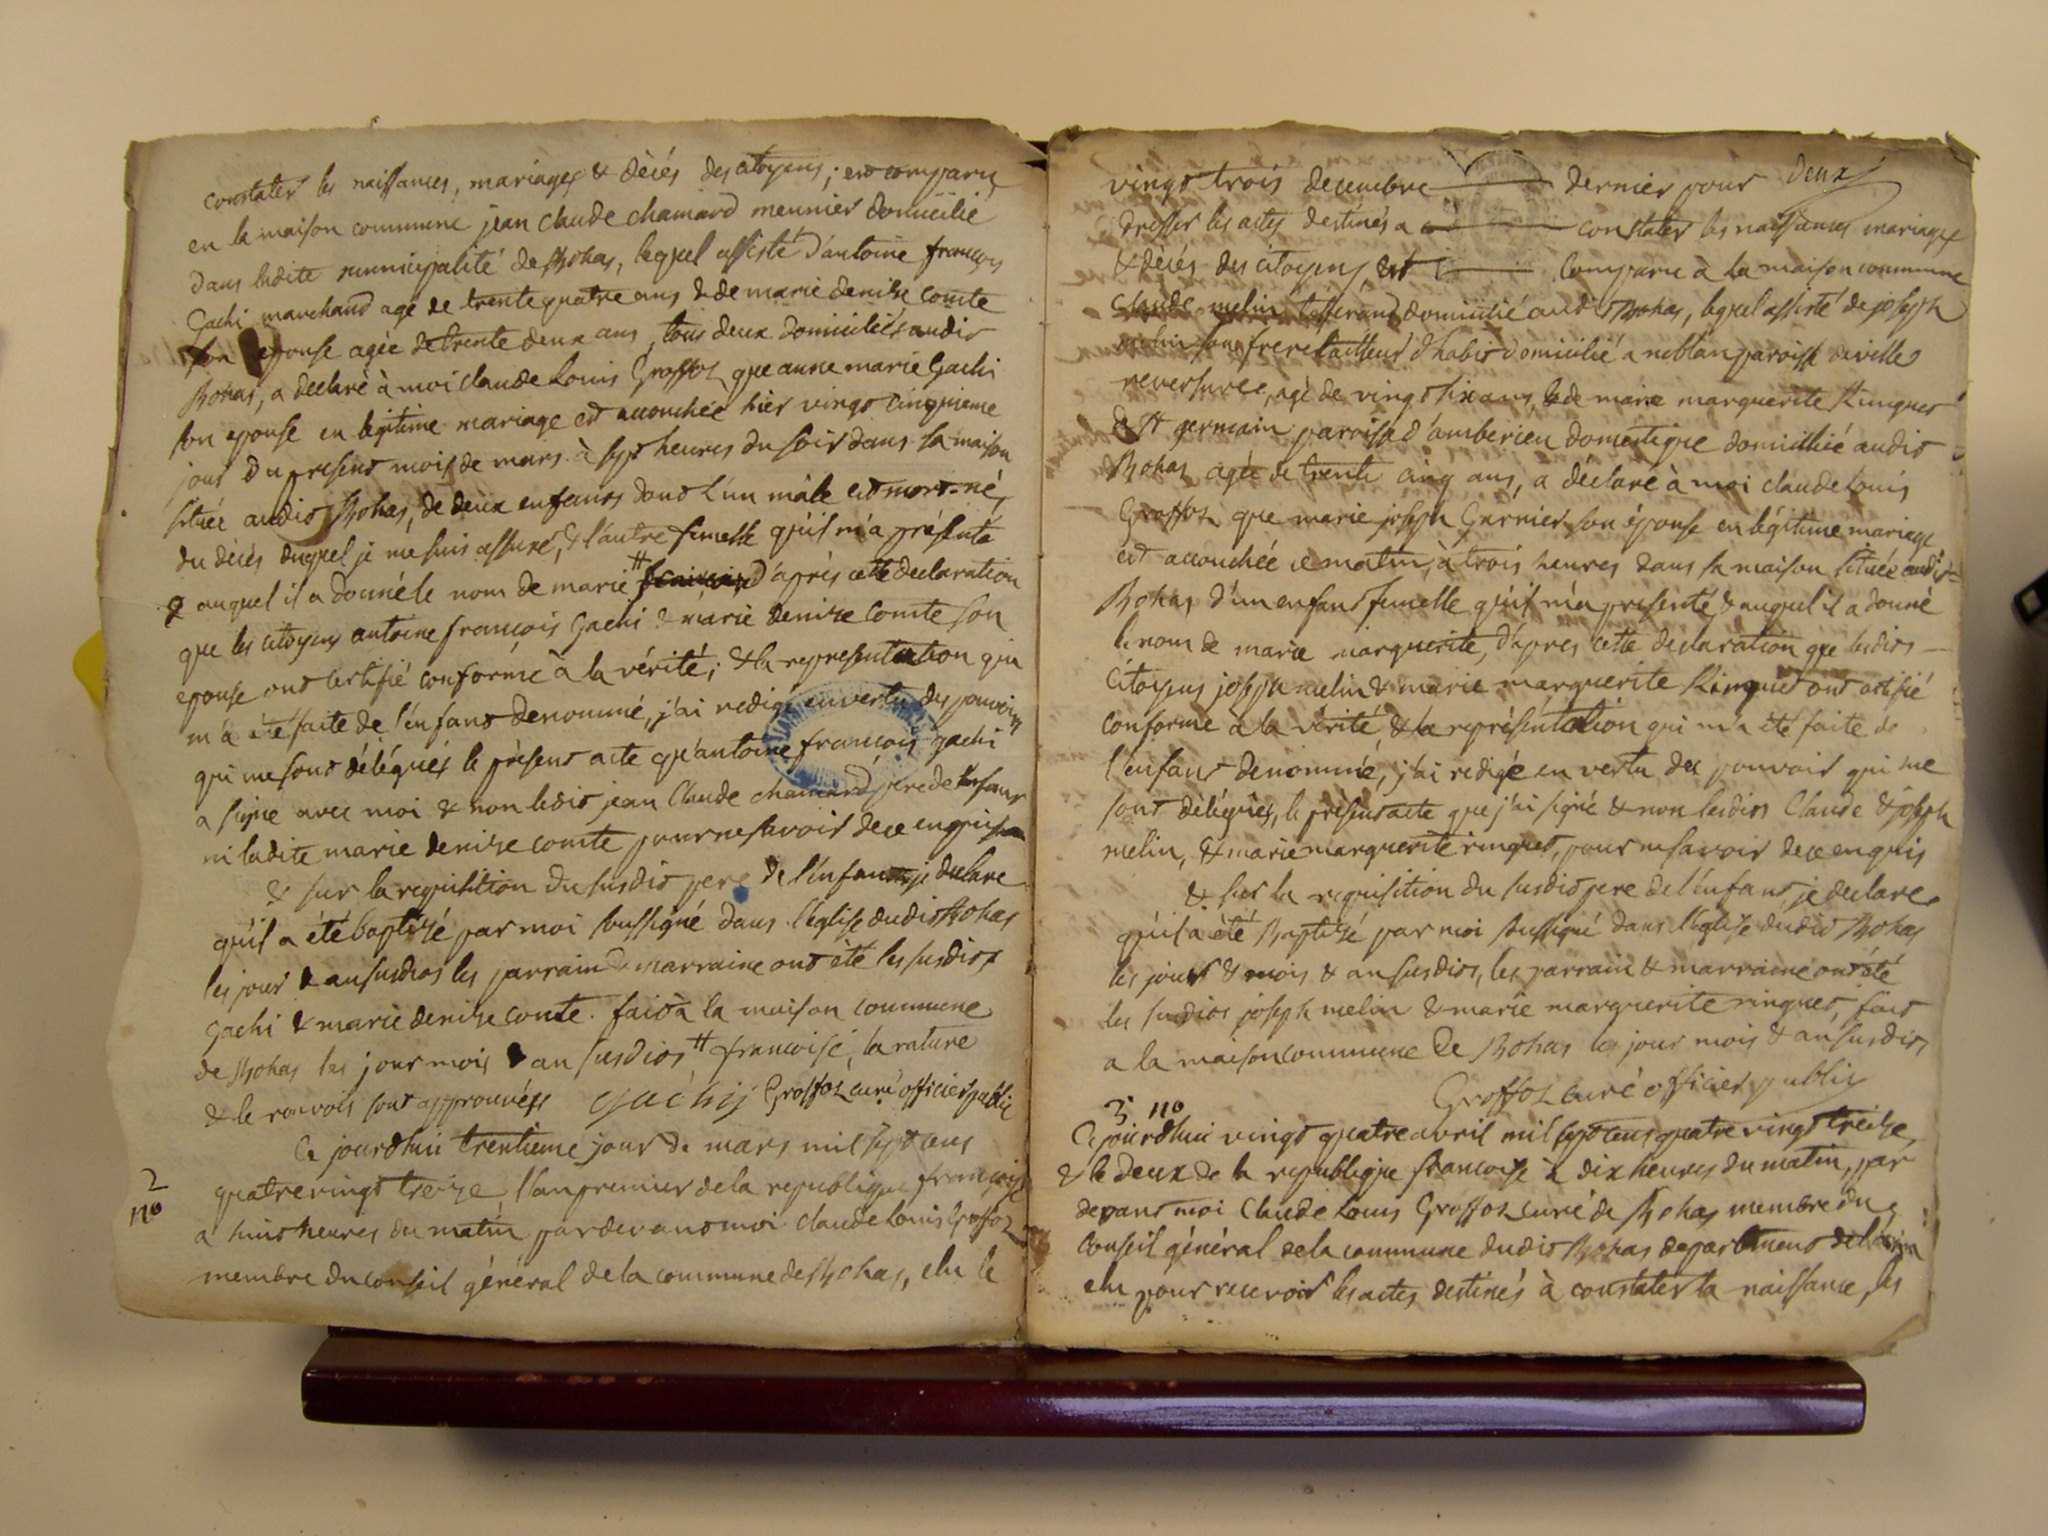 constater les naissances, mariages & dècés des citoyens; est comparu
en la maison commune jean claude chamard meunier domicilié
dans ladite municipalité de Bohas, lequel assisté d'antoine françois
Gachi marchand agé de trente quatre ans & de marie denize comte
son epouse agée de trente deux ans, tous deux domiciliés audit
Bohas, a declaré à moi claude Louis Groffoz que anne marie Gachi
son epouse en légitime mariage est accouchée hier vingt cinquieme
jour du present mois de mars à sept heures du soir dans sa maison
située audit Bohas, de deux enfants dont l'un mâle est mort-né,
du décès duquel je me suis assuré, & l'autre femelle qu'il m'a présenté
& auquel il a donné le nom de marie # d'après cette declaration
que les citoyens antoine françois Gachi & marie denize comte son
epouse ont certifié conforme à la vérité; & la representation qui
m'a été faite de l'enfant denommé, j'ai redigé en vertu des pouvoirs
qui me sont délégués le présent acte qu'antoine françois gachi
a signé avec moi & non ledit jean Claude chamard pere de l'enfant
ni ladite marie denize comte pour ne savoir de ce enquis
& sur la requisition du susdit pere de l'enfant je declare
qu'il a été baptisé par moi soussigné dans l'église dudit Bohas
les jour & an susdits les parrain & marraine ont été les susdits
Gachi & marie denize comte. fait à la maison commune
de Bohas les jour mois & an susdits # francoise, la rature
& le renvois sont approuvés Gachij Groffoz curé officier public
Ce jourdhui trentieme jour de mars mil sept cens
2 quatre vingt treize l'an premier de la republique françoise
no a huit heures du matin par devant moi claude Louis Groffoz
membre du conseil général de la commune de Bohas, elu le
deux
vingt trois decembre dernier pour
dresser les actes destinés a constater les naissances mariages
& décés des citoyens, est comparu à la maison commune
Claude melin tisserand domicilié audit Bohas, lequel assisté de joseph
melin son frere tailleur d'habit domicilié a noblan paroisse de ville
reversure, agé de vingt six ans, & de marie marguerite Ringuet
de St germain paroisse d'amberieu domestique domiciliée audit
Bohas agée de trente cinq ans, a déclaré à moi claude Louis
Groffoz que marie joseph Garnier son épouse en légitime mariage
est accouchée ce matin, à trois heures dans sa maison située audit
Bohas d'un enfant femelle qu'il m'a presenté & auquel il a donné
le nom de marie marguerite, d'apres cette declaration que lesdits
Citoyens joseph melin & marie marguerite Ringuet ont certifié
conforme a la vérité & la représentation qui m'a été faite de
l'enfant denommé, j'ai redigé en vertu des pouvoirs qui me
sont délégués, le présent acte que j'ai signé & non lesdits Claude & joseph
melin, & marie marguerite ringuet, pour ne savoir de ce enquis
& sur la requisition du susdit pere de l'enfant, je declare
qu'il a été Baptisé par moi soussigné dans l'église dudit Bohas
les jour & mois & an susdits, les parrain & marraine ont été
les susdits joseph melin & marie marguerite ringuet, fait
a la maison commune de Bohas les jour mois & an susdits
Groffoz curé officier public
3 no
Ce jourdhui vingt quatre avril mil sept cens quatre vingt treize,
& le deux de la republique francoise à dix heures du matin, par
devant moi Claude Louis Groffoz curé de Bohas membre du
Conseil général de la commune dudit Bohas departement de l'ain
elu pour recevoir les actes destinés à constater la naissance, les